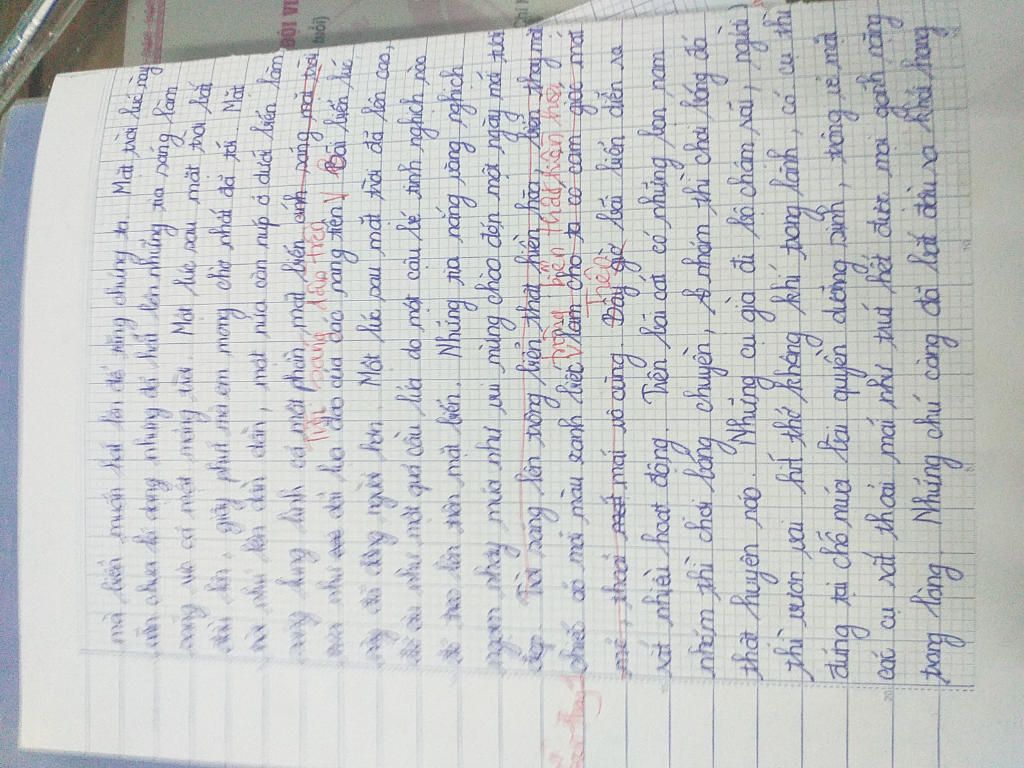 mà biển muốn hát lên để tặng chúng ta. Mặt trời lúc này
vẫn chưa lộ dạng nhưng đã hắt lên những tia sáng làm
nắng và cả mặt
dài lên, giây phút mà em mong chờ nhất đã tới. Mặt
trời nhú lên dần dần, một nửa còn núp ở dưới biển làm
sóng lung linh cả một phần mặt biển ánh sáng mặt trời
Tựa bảng dấp trêu
như đổi lại màu của dao sang tiên V Bãi biển lúc
này đã đông người hơn. Một lúc sau mặt trời đã lên cao,
đỏ ửng như một quả cầu lửa do một cậu bé tinh nghịch nào
đó treo lên trên mặt biển. Những tia nắng vàng nghịch
ngợm nhảy múa như vui mừng chào đến một ngày mới tươi
đẹp. Trời sáng lên trông biển thật hiền hòa biển thay một
Trông biển thật hiền hòa,
chiếc áo mới màu xanh biếc V làm cho ta có cảm giác mát
mẻ, thoải mái vô cùng. Đây giờ bãi biển diễn ra
Trên
rất nhiều hoạt động. Trên bãi cát có những bạn nam
nhóm thì chơi bóng chuyền, nhóm thì chơi bóng đá
thật huyên náo. Những cụ già đi bộ chậm rãi, người
thì vươn vai hít thở không khí trong lành, có cụ thì
đứng tại chỗ múa bài quyền dưỡng sinh, trông vẻ mặt
các cụ rất thoải mái như trút hết được mọi gánh nặng
trong lòng. Những chú còng đã bắt đầu ra khỏi hang